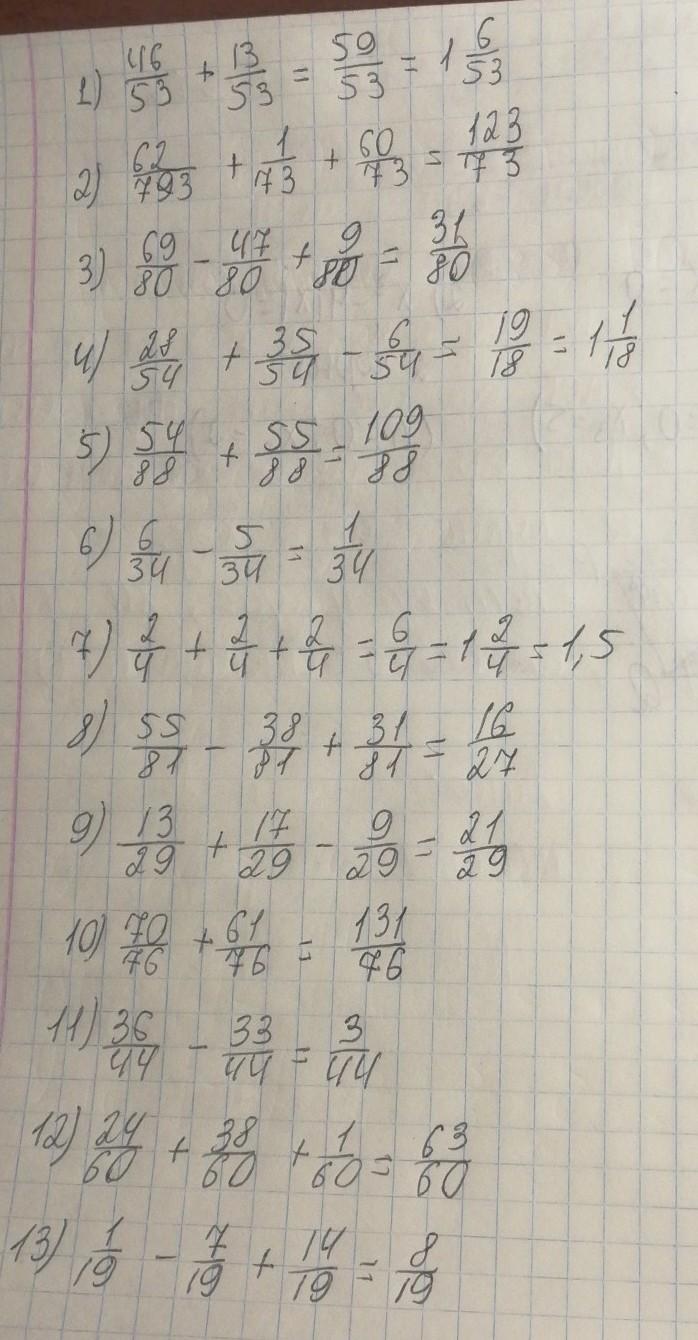 1) 46/53 + 13/53 = 59/53 = 1 6/53
2) 62/793 + 1/73 + 60/73 = 123/73
3) 69/80 - 47/80 + 9/80 = 31/80
4) 28/54 + 35/54 - 6/54 = 19/18 = 1 1/18
5) 54/88 + 55/88 = 109/88
6) 6/34 - 5/34 = 1/34
7) 2/4 + 2/4 + 2/4 = 6/4 = 1 2/4 = 1,5
8) 55/81 - 38/81 + 31/81 = 16/27
9) 13/29 + 17/29 - 9/29 = 21/29
10) 70/76 + 61/76 = 131/76
11) 36/44 - 33/44 = 3/44
12) 24/60 + 38/60 + 1/60 = 63/60
13) 1/19 - 7/19 + 14/19 = 8/19